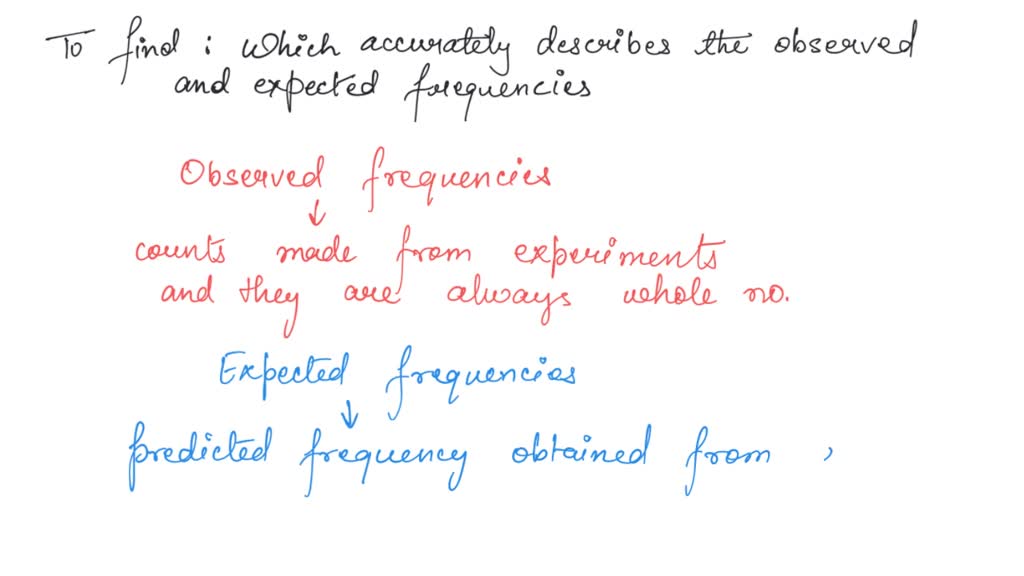 To find : which accurately describes the observed
and expected frequencies
Observed frequencies
↓
counts made from experiments
and they are always whole no.
Expected frequencies
↓
predicted frequency obtained from